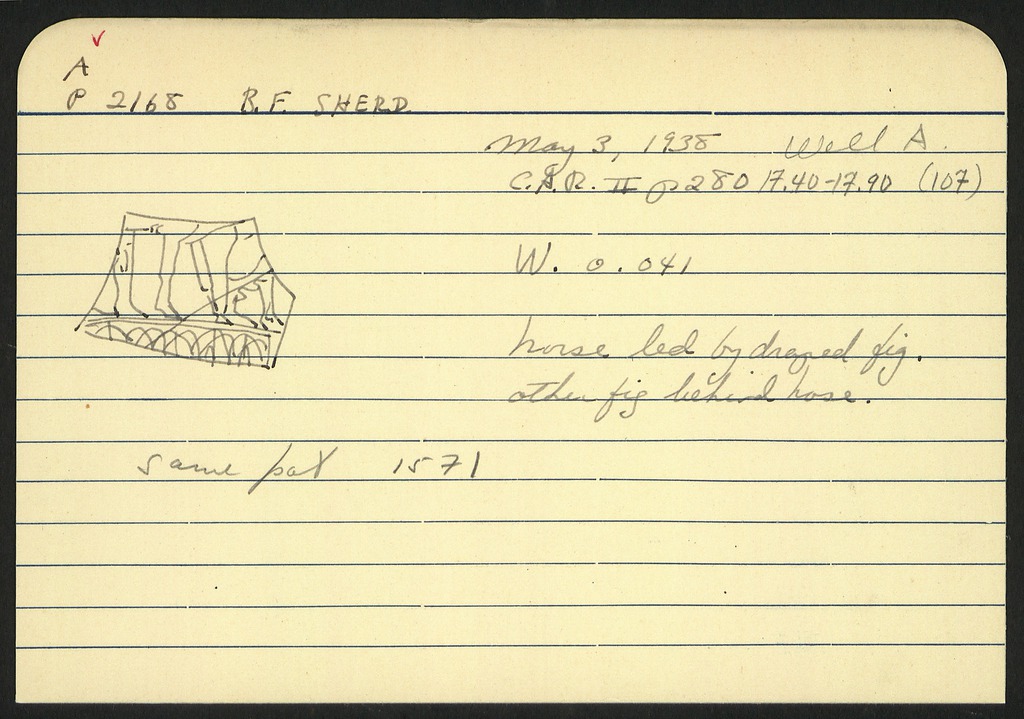 A
P 2168 B.F. SHERD
May 3, 1938 Well A.
C.G.R. II p 280 17.40-17.90 (107)
W. 0.041
horse led by draped fig.
other fig behind hose.
same pot 1571